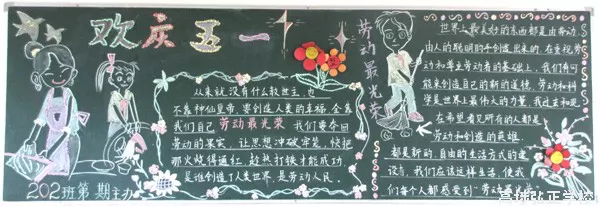 欢庆五一
从来就没有什么救世主,也
不靠神仙皇帝,要创造人类的幸福,全靠
我们自己 劳动最光荣 我们要夺回
劳动的果实,让思想冲破牢笼,快把
那火烧得通红,趁热打铁才能成功
是谁创造了人类世界,是劳动人民
202班第 期主办
劳动最光荣
世界上最美好的东西都是由劳动,
由人的聪明的手创造出来的,在重视劳
动和尊重劳动者的基础上,我们有可
能来创造自己的新的道德,劳动和科
学是世界上最伟大的力量,我过去和现
在希望看见所有的人都是
劳动和创造的英雄
都是新的,自由的生活方式的建
设者,我们应该这样生活,使我
们每个人都感受到"劳动最光荣